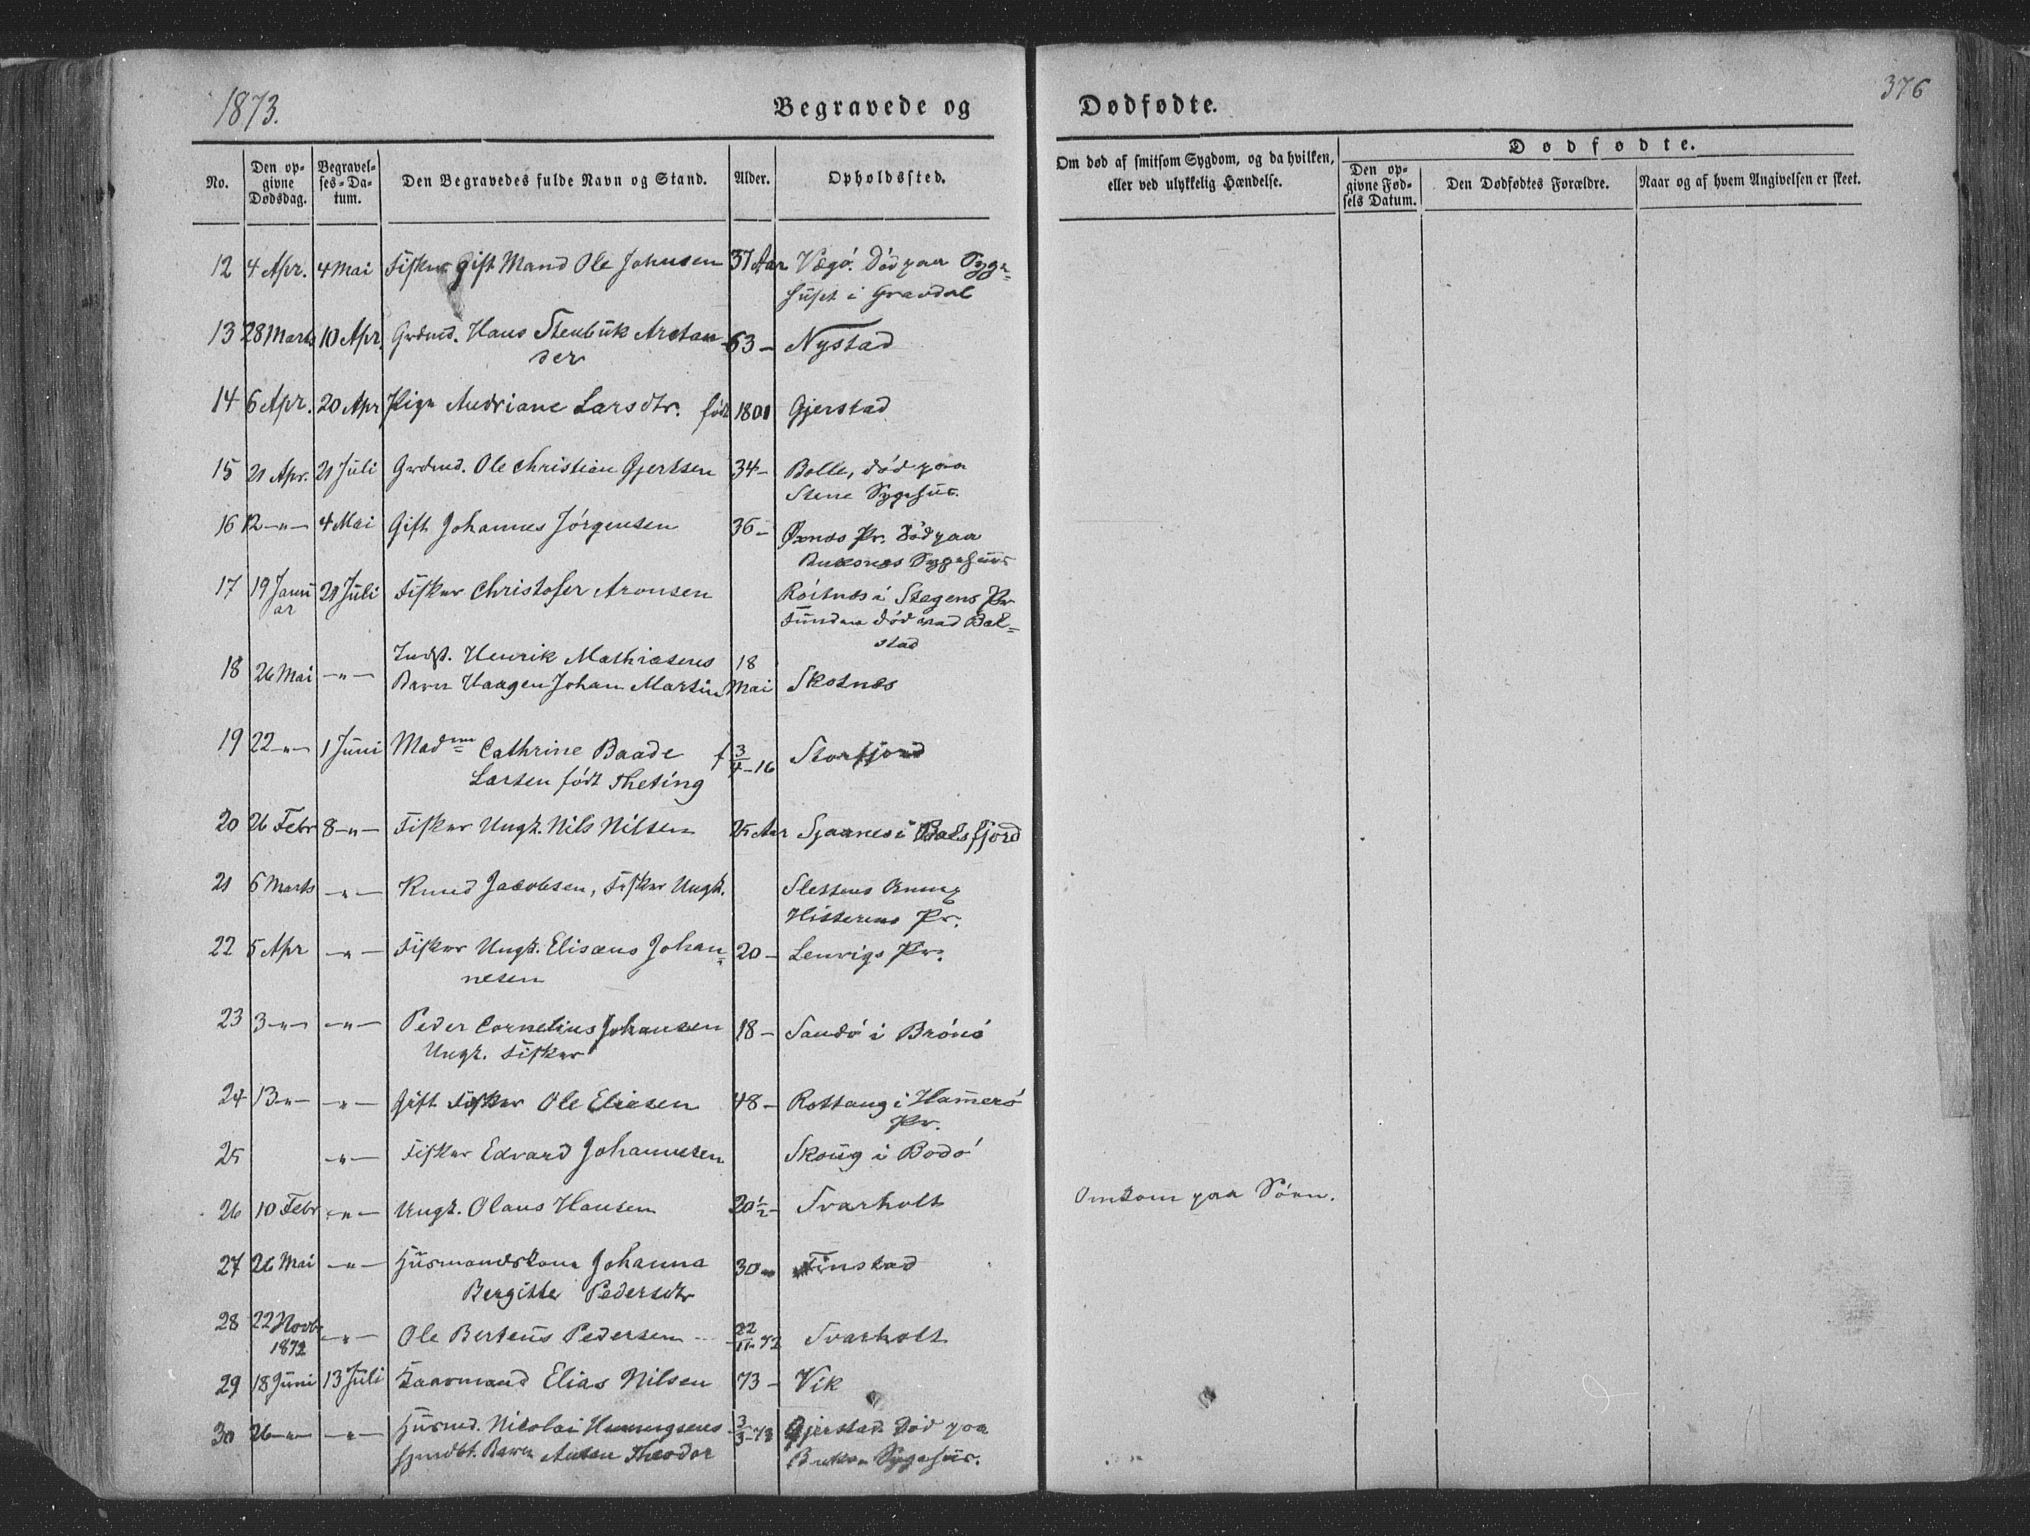 1873.
Begravede og
Dødfødte.
376
No.
Den opgivne Dødsdag.
Begravelses-Datum.
Den Begravedes fulde Navn og Stand.
Alder.
Opholdssted.
Om død af smitsom Sygdom, og da hvilken, eller ved ulykkelig Hændelse.
Dødfødte.
Den opgivne Fødsels Datum.
Den Dødfødtes Forældre.
Naar og af hvem Angivelsen er skeet.
12 4 Apr. 4 Mai Fisker Gift Mand Ole Johnsen 37 Aar Vægö. Död paa Syge=
huset i Gravdal
13 28 Marts 10 Apr. Grdmd. Hans Stenbuk Arctan 63 – Nystad
der
14 6 Apr. 20 Apr Pige Andriane Larsdtr. født 1801 Gjerstad
15 21 Apr. 21 Juli Grdmd. Ole Christian Gjertsen 34 – Bolle, död paa
Stene Sygehus.
16 12 –"– 4 Mai Gift Johannes Jörgensen 36 – Øxnes Pr. Död paa
Buksnæs Sygehuus
17 19 Janu 21 Juli Fisker Christofer Aronsen Röitnæs i Stegens Pr
ar Funden död ved Bal=
stad
18 26 Mai –"– Indst. Henrik Mathiasens 18
Barn Haagen Johan Martin Mai Skotnæs
19 22 –"– 1 Juni Madme Cathrine Baade f 3/4–16 Storfjord
Larsen født Theting
20 26 Febr 8 –"– Fisker Ungk. Nils Nilsen 25 Aar Sjaanes i Balsfjord
21 6 Marts –"– Knud Jacobsen, Fisker Ungk. Slettens
Hitterens Pr.
22 5 Apr –"– Fisker Ungk. Elisæus Johan= 20 – Lenvigs Pr.
nesen
23 3 –"– –"– Peder Cornelius Johansen 18 – Sandö i Brönö
Ungk. Fisker
24 13 –"– –"– Gift Fisker Ole Eliesen 48 – Rottang i Hammerö
Pr.
25 –"– Fisker Edvard Johannesen Skoug i Bodö
26 10 Febr –"– Ungk. Olaus Hansen 20½ – Svarholt Omkom paa Søen.
27 26 Mai –"– Husmandskone Johanna 30 – Finstad
Bergitte Pedersdtr
28 22 Novb –"– Ole Berteüs Pedersen 22/11–72 Svarholt
1872
29 18 Juni 13 Juli Kaarmand Elias Nilsen 73 – Vik
30 26 –"– –"– Husmd. Nicolai Henningsens 3/3–73 Gjerstad. Död paa
hjmdbt. Barn Anton Theodor Buksn Sygehus.